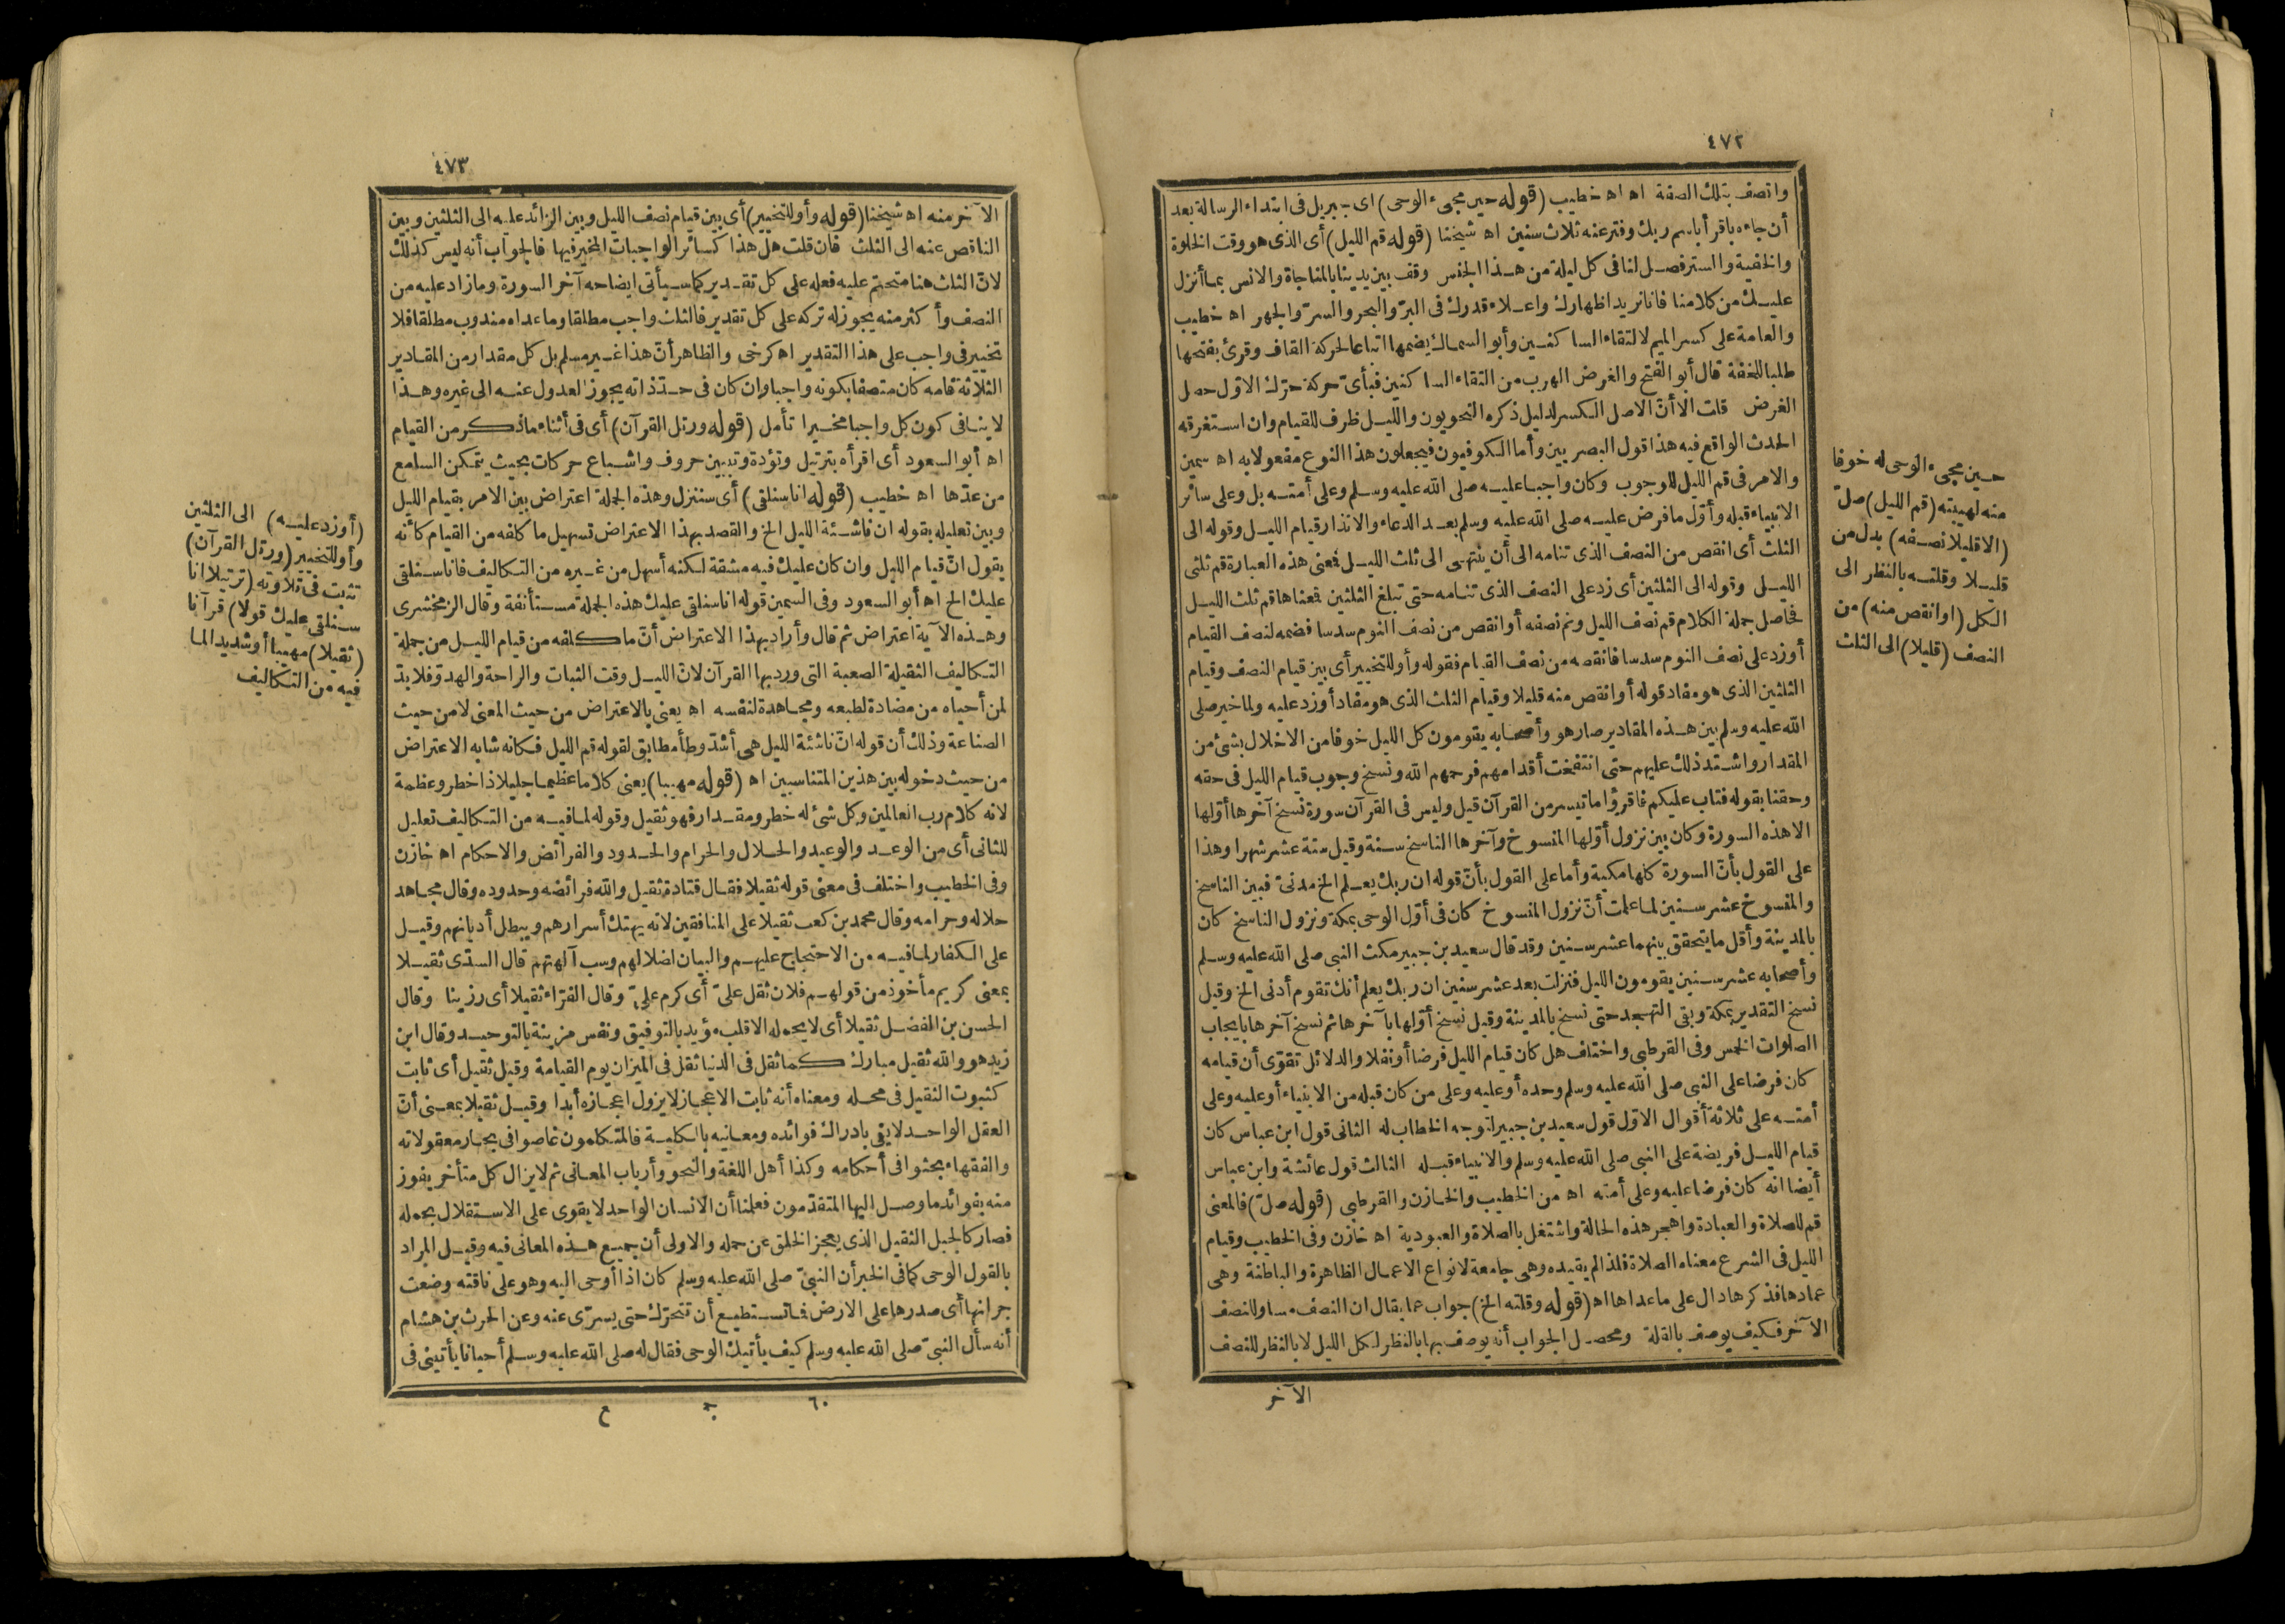 ٤٧٢
واتصف بتلك الصفة اه اه خطيب (قوله حين مجىء الوحى) اى جبريل فى ابتداء الرسالة بعد
أن جاءه باقرأ باسم ربك وفتر عنه ثلاث سنين اه شيخنا (قوله قم الليل) أى الذى هو وقت الخلوة
والخفية والستر فصل لنا فى كل ليلة من هذا الجنس وقف بين يدينا بالمناجاة والانس بما أنزل
عليك من كلامنا فانا نريد اظهارك واعلاء قدرك فى البر والبحر والسر والجهر اه خطيب
والعامة على كسر الميم لالتقاء الساكنين وأبو السمال يضمها اتباعا لحركة القاف وقرئ بفتحها
طلبا للخفة قال أبو الفتح والغرض الهرب من التقاء الساكنين فبأى حركة حرك الاول حصل
الغرض قلت الا أن الاصل الكسر لدليل ذكره النحويون والليل ظرف للقيام وان استغرقه
الحدث الواقع فيه هذا قول البصريين وأما الكوفيون فيجعلون هذا النوع مفعولا به اه سمين
والامر فى قم الليل للوجوب وكان واجبا عليه صلى الله عليه وسلم وعلى أمته بل وعلى سائر
الانبياء قبله وأول ما فرض عليه صلى الله عليه وسلم بعد الدعاء والانذار قيام الليل وقوله الى
الثلث أى انقص من النصف الذى تنامه الى أن ينتهى الى ثلث الليل فمعنى هذه العبارة قم ثلثى
الليل وقوله الى الثلثين أى زد على النصف الذى تنامه حتى تبلغ الثلثين فمعناها قم ثلث الليل
فحاصل جملة الكلام قم نصف الليل ونم نصفه أو انقص من نصف النوم سدسا فضمه لنصف القيام
أو زد على نصف النوم سدسا فانقصه من نصف القيام فقوله وأو للتخيير أى بين قيام النصف وقيام
الثلثين الذى هو مفاد قوله أو انقص منه قليلا وقيام الثلث الذى هو مفاد أو زد عليه ولما خير صلى
الله عليه وسلم بين هذه المقادير صار هو وأصحابه يقومون كل الليل خوفا من الاخلال بشئ من
المقدار واشتد ذلك عليهم حتى انتفخت أقدامهم فرحمهم الله ونسخ وجوب قيام الليل فى حقه
وحقنا بقوله فتاب عليكم فاقرؤا ما تيسر من القرآن قيل وليس فى القرآن سورة نسخ آخرها أولها
الا هذه السورة وكان بين نزول أولها المنسوخ وآخرها الناسخ سنة وقيل ستة عشر شهرا وهذا
على القول بأن السورة كلها مكية وأما على القول بأن قوله ان ربك يعلم الخ مدنى فبين الناسخ
والمنسوخ عشر سنين لما علمت أن نزول المنسوخ كان فى أول الوحى بمكة ونزول الناسخ كان
بالمدينة وأقل ما يتحقق بينهما عشر سنين وقد قال سعيد بن جبير مكث النبى صلى الله عليه وسلم
وأصحابه عشر سنين يقومون الليل فنزلت بعد عشر سنين ان ربك يعلم أنك تقوم أدنى الخ وقيل
نسخ التقدير بمكة وبقى التهجد حتى نسخ بالمدينة وقيل نسخ أولها بآخرها ثم نسخ آخرها بايجاب
الصلوات الخمس وفى القرطبى واختلف هل كان قيام الليل فرضا أو نفلا والدلائل تقوى أن قيامه
كان فرضا على النبى صلى الله عليه وسلم وحده أو عليه وعلى من كان قبله من الانبياء أو عليه وعلى
أمته على ثلاثة أقوال الاول قول سعيد بن جبير لتوجه الخطاب له الثانى قول ابن عباس كان
قيام الليل فريضة على النبى صلى الله عليه وسلم والانبياء قبله الثالث قول عائشة وابن عباس
أيضا انه كان فرضا عليه وعلى أمته اه من الخطيب والخازن والقرطبى (قوله صل) فالمعنى
قم للصلاة والعبادة واهجر هذه الحالة واشتغل بالصلاة والعبودية اه خازن وفى الخطيب وقيام
الليل فى الشرع معناه الصلاة فلذا لم يقيده وهى جامعة لانواع الاعمال الظاهرة والباطنة وهى
عمادها فذكرها دال على ما عداها اه (قوله وقلته الخ) جواب عما يقال ان النصف مساو للنصف
الآخر فكيف يوصف بالقلة ومحصل الجواب أنه يوصف بها بالنظر لكل الليل لا بالنظر للنصف
الآخر
حين مجىء الوحى له خوفا
منه لهيبته (قم الليل) صل
(الا قليلا نصفه) بدل من
قليلا وقلته بالنظر الى
الكل (او انقص منه) من
النصف (قليلا) الى الثلث
٤٧٣
الآخر منه اه شيخنا (قوله وأو للتخيير) أى بين قيام نصف الليل وبين الزائد عليه الى الثلثين وبين
الناقص عنه الى الثلث فان قلت هل هذا كسائر الواجبات المخير فيها فالجواب أنه ليس كذلك
لان الثلث هنا متحتم عليه فعله على كل تقدير كما سيأتى ايضاحه آخر السورة وما زاد عليه من
النصف وأكثر منه يجوز له تركه على كل تقدير فالثلث واجب مطلقا وما عداه مندوب مطلقا فلا
تخيير فى واجب على هذا التقدير اه كرخى والظاهر أن هذا غير مسلم بل كل مقدار من المقادير
الثلاثة قامه كان متصفا بكونه واجبا وان كان فى حد ذاته يجوز العدول عنه الى غيره وهذا
لا ينافى كون كل واجبا مخيرا تأمل (قوله ورتل القرآن) أى فى أثناء ما ذكر من القيام
اه أبو السعود أى اقرأه بترتيل وتؤدة وتبيين حروف واشباع حركات بحيث يتمكن السامع
من عدها اه خطيب (قوله انا سنلقى) أى سننزل وهذه الجملة اعتراض بين الامر بقيام الليل
وبين تعليله بقوله ان ناشئة الليل الخ والقصد بهذا الاعتراض تسهيل ما كلفه من القيام كأنه
يقول ان قيام الليل وان كان عليك فيه مشقة لكنه أسهل من غيره من التكاليف فانا سنلقى
عليك الخ اه أبو السعود وفى السمين قوله انا سنلقى عليك هذه الجملة مستأنفة وقال الزمخشرى
وهذه الآية اعتراض ثم قال وأراد بهذا الاعتراض أن ما كلفه من قيام الليل من جملة
التكاليف الثقيلة الصعبة التى ورد بها القرآن لان الليل وقت الثبات والراحة والهدو فلا بد
لمن أحياه من مضادة لطبعه ومجاهدة لنفسه اه يعنى بالاعتراض من حيث المعنى لا من حيث
الصناعة وذلك أن قوله ان ناشئة الليل هى أشد وطأ مطابق لقوله قم الليل فكانه شابه الاعتراض
من حيث دخوله بين هذين المتناسبين اه (قوله مهيبا) يعنى كلاما عظيما جليلا ذا خطر وعظمة
لانه كلام رب العالمين وكل شئ له خطر ومقدار فهو ثقيل وقوله لما فيه من التكاليف تعليل
للثانى أى من الوعد والوعيد والحلال والحرام والحدود والفرائض والاحكام اه خازن
وفى الخطيب واختلف فى معنى قوله ثقيلا فقال قتادة ثقيل والله فرائضه وحدوده وقال مجاهد
حلاله وحرامه وقال محمد بن كعب ثقيلا على المنافقين لانه يهتك أسرارهم ويبطل أديانهم وقيل
على الكفار لما فيه من الاحتجاج عليهم والبيان لضلالهم وسب آلهتهم قال السدى ثقيلا
بمعنى كريم مأخوذ من قولهم فلان ثقل على أى كرم على وقال الفراء ثقيلا أى رزينا وقال
الحسن بن المفضل ثقيلا أى لا يحمله الا قلب مؤيد بالتوفيق ونفس مزينة بالتوحيد وقال ابن
زيد هو والله ثقيل مبارك كما ثقل فى الدنيا ثقل فى الميزان يوم القيامة وقيل ثقيل أى ثابت
كثبوت الثقيل فى محله ومعناه أنه ثابت الاعجاز لا يزول اعجازه أبدا وقيل ثقيلا بمعنى أن
العقل الواحد لا يفى بادراك فوائده ومعانيه بالكلية فالمتكلمون غاصوا فى بحار معقولاته
والفقهاء بحثوا فى أحكامه وكذا أهل اللغة والنحو وأرباب المعانى ثم لا يزال كل متأخر يفوز
منه بفوائد ما وصل اليها المتقدمون فعلمنا أن الانسان الواحد لا يقوى على الاستقلال بحمله
فصار كالجبل الثقيل الذى يعجز الخلق عن حمله والاولى أن جميع هذه المعانى فيه وقيل المراد
بالقول الوحى كما فى الخبر أن النبى صلى الله عليه وسلم كان اذا أوحى اليه وهو على ناقته وضعت
جرانها أى صدرها على الارض فما تستطيع أن تتحرك حتى يسرى عنه وعن الحرث بن هشام
أنه سأل النبى صلى الله عليه وسلم كيف يأتيك الوحى فقال له صلى الله عليه وسلم أحيانا يأتينى فى
٦٠ ج ع
(أو زد عليه) الى الثلثين
وأو للتخيير (ورتل القرآن)
تثبت فى تلاوته (ترتيلا انا
سنلقى عليك قولا) قرآنا
(ثقيلا) مهيبا أو شديدا لما
فيه من التكاليف